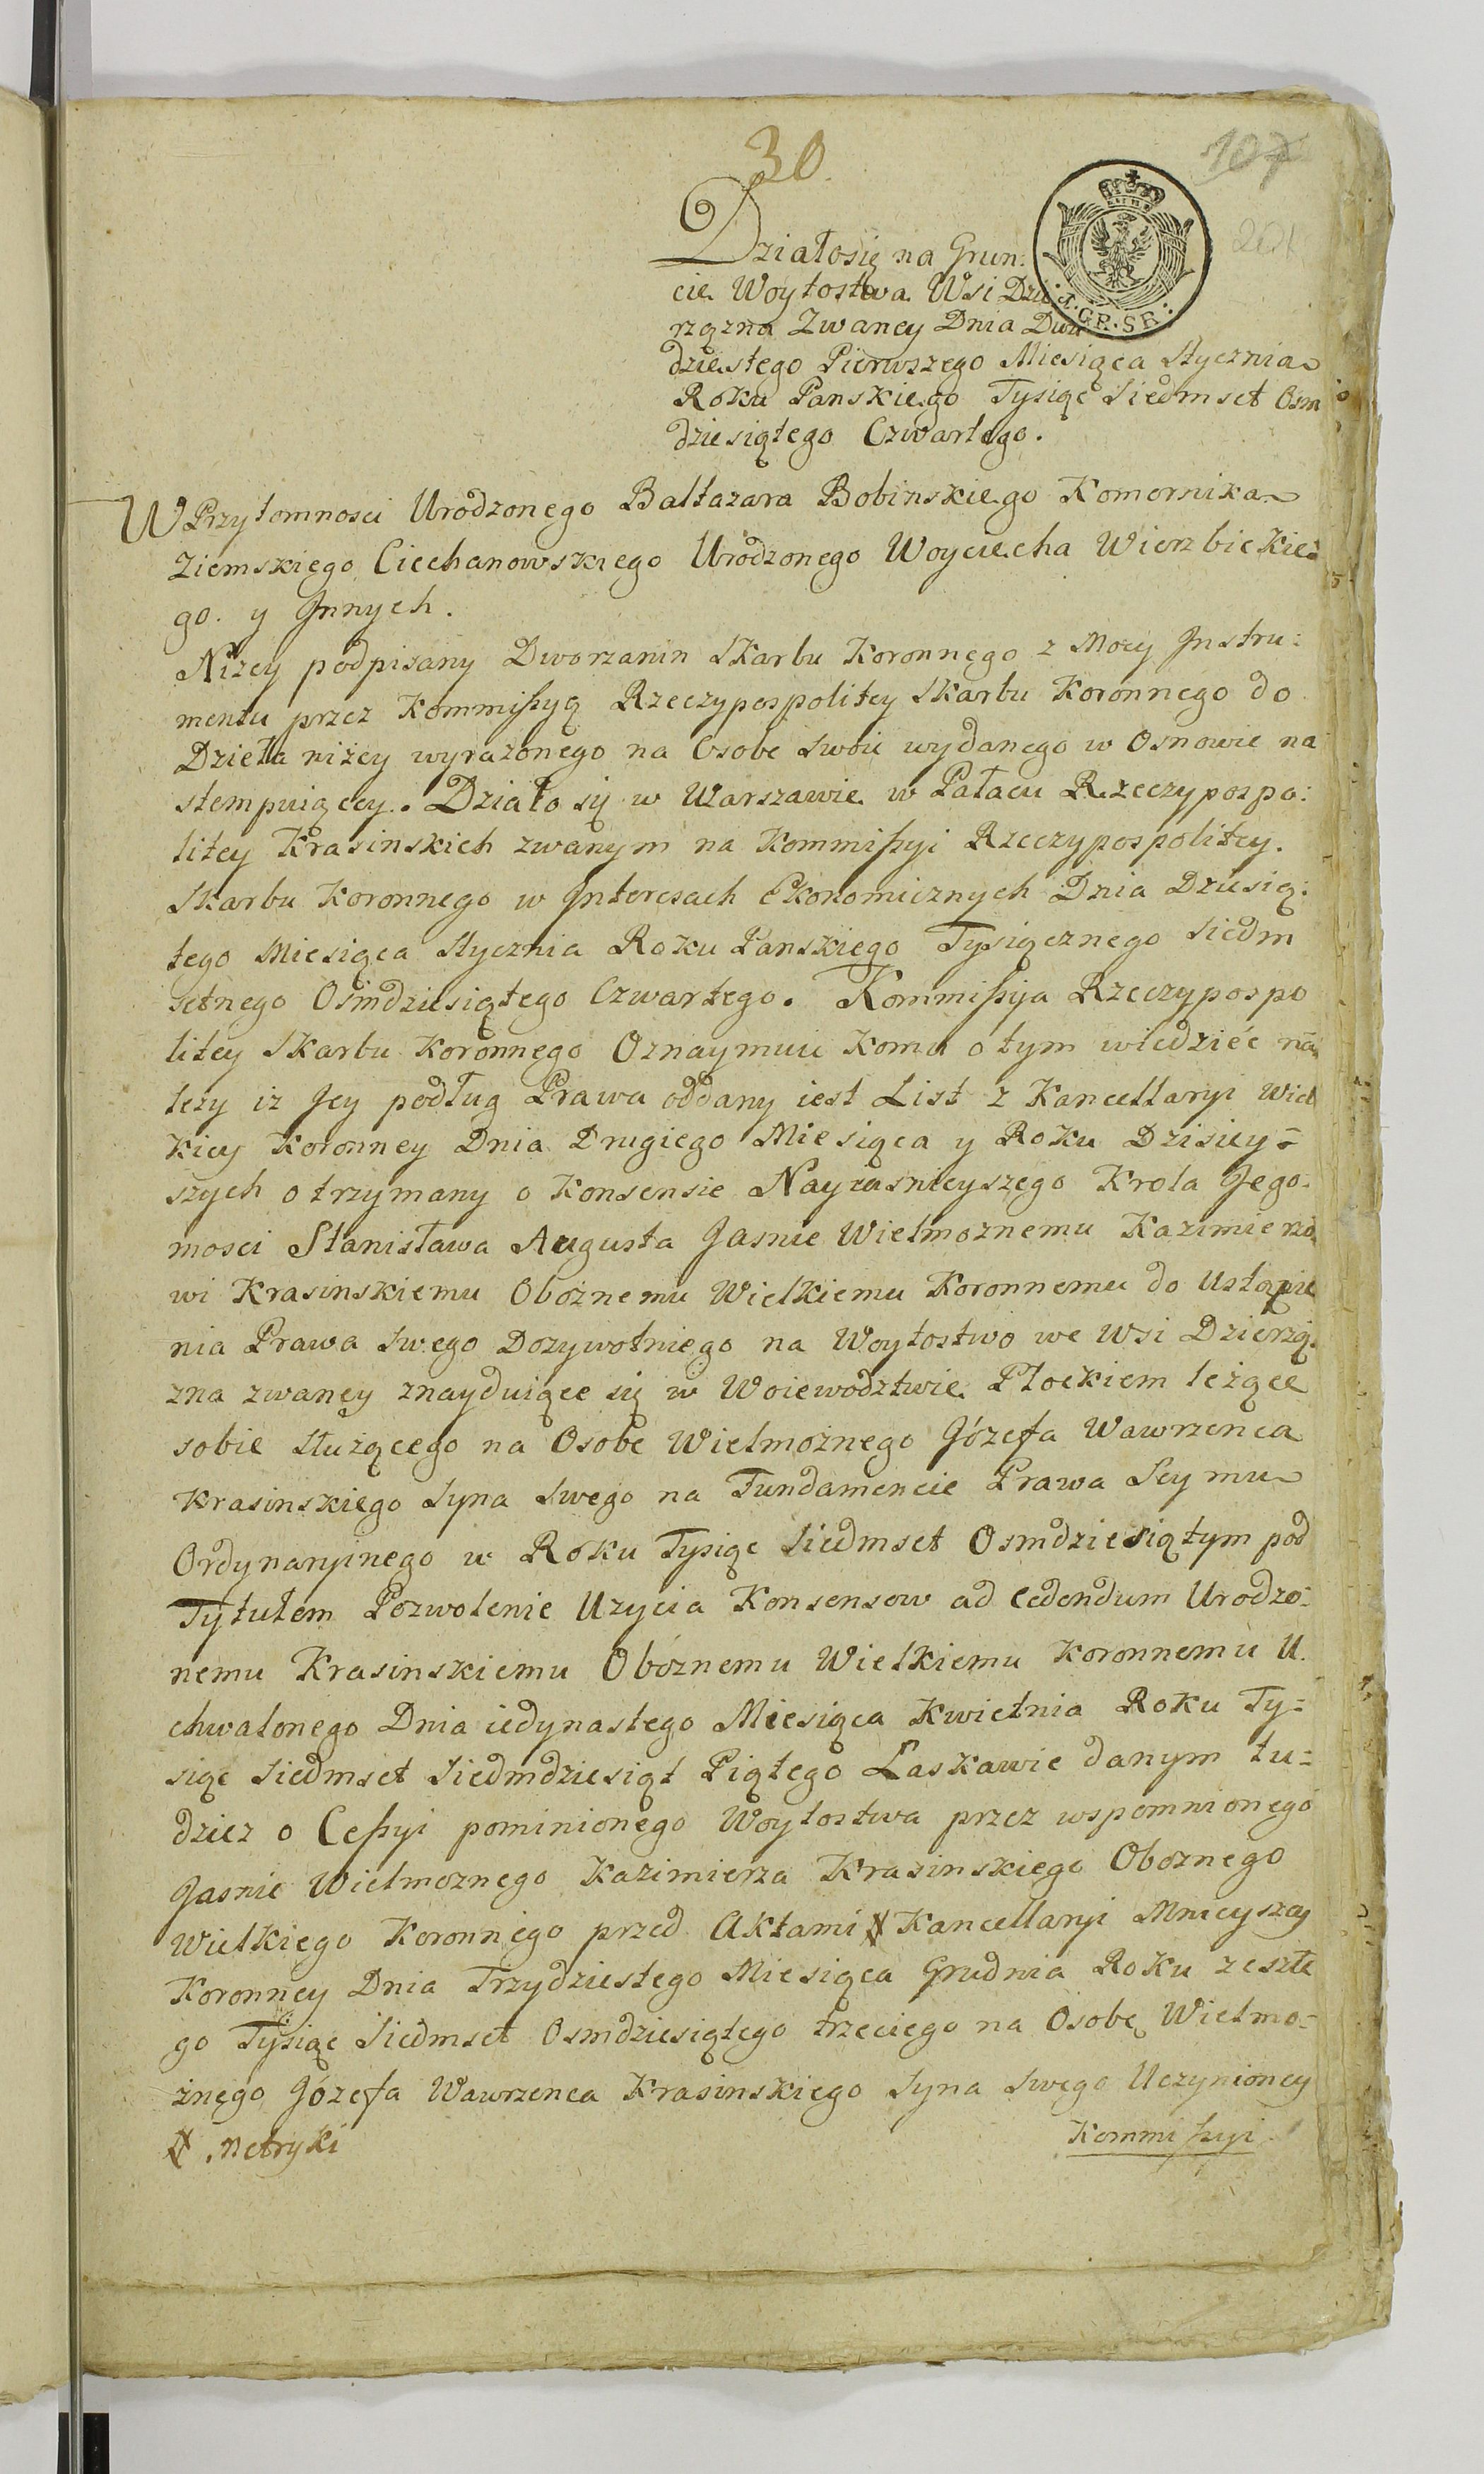 30.
107
201
Działosię na Grun:
cie Woytostwa Wsi Dzie
rzązna Zwaney Dnia Dwu
dziestego Pierwszego Miesiąca Stycznia
Roku Panskiego Tysiąc Siedmset Osm
dziesiątego Czwartego.
GR. SR.
W Przytomnosci Urodzonego Baltazara Bobinskiego Komornika
Ziemskiego Ciechanowskiego Urodzonego Woyciecha Wierzbickie:
go. y Jnnych.
Niżey podpisany Dworzanin Skarbu Koronnego z Mocy Jnstru:
mentu przez Kommißyą Rzeczypospolitey Skarbu Koronnego do
Dzieła niżey wyrażonego na Osobe Swoie wydanego w Osnowie na
stempuiącey. Działo się w Warszawie w Pałacu Rzeczypospo:
litey Krasinskich zwanym na Kommißyi Rzeczypospolitey.
Skarbu Koronnego w Jnteresach Ekonomicznych Dnia Dziesią:
tego Miesiąca Stycznia Roku Panskiego Tysiącznego Siedm
setnego Ośmdziesiątego Czwartego. Kommißyja Rzeczypospo
litey Skarbu Koronnego Oznaymuie Komu o tym wiedzieć na
leży iz Jey podług Prawa oddany iest List z Kancellaryi Wiel
kiey Koronney Dnia Drugiego Miesiąca y Roku Dzisiey=
szych otrzymany o Konsensie Nayiasnieyszego Krola Jego:
mosci Stanisława Augusta Jasnie Wielmoznemu Kazimierzo
wi Krasinskiemu Obożnemu Wielkiemu Koronnemu do Ustąpie
nia Prawa Swego Dozywotniego na Woytostwo we Wsi Dzierzą
zna zwaney znayduiące się w Woiewodztwie Płockiem leżące
sobie Służącego na Osobe Wielmożnego Józefa Wawrzenca
Krasinskiego Syna Swego na Fundamencie Prawa Seymu
Ordynaryinego w Roku Tysiąc Siedmset Osmdziesiątym pod
Tytułem Pozwolenie Uzycia Konsensow ad Cedendum Urodzo:
nemu Krasinskiemu Obóznemu Wielkiemu Koronnemu U.
chwalonego Dnia iedynastego Miesiąca Kwietnia Roku Ty=
siąc Siedmset Siedmdziesiąt Piątego Łaskawie danym tu=
dziez o Ceßyi pominionego Woytostwa przez wspomnionego
Jasnie Wielmoznego Kazimierza Krasinskiego Oboznego
Wielkiego Koronnego przed Aktami # Kancellaryi Mnieyszey
Koronney Dnia Trzydziestego Miesiąca Grudnia Roku zeszłe
go Tysiąc Siedmset Osmdziesiątego trzeciego na Osobę Wielmo=
żnego Józefa Wawrzenca Krasinskiego Syna Swego Uczynioney
# . Metryki
Kommißyi